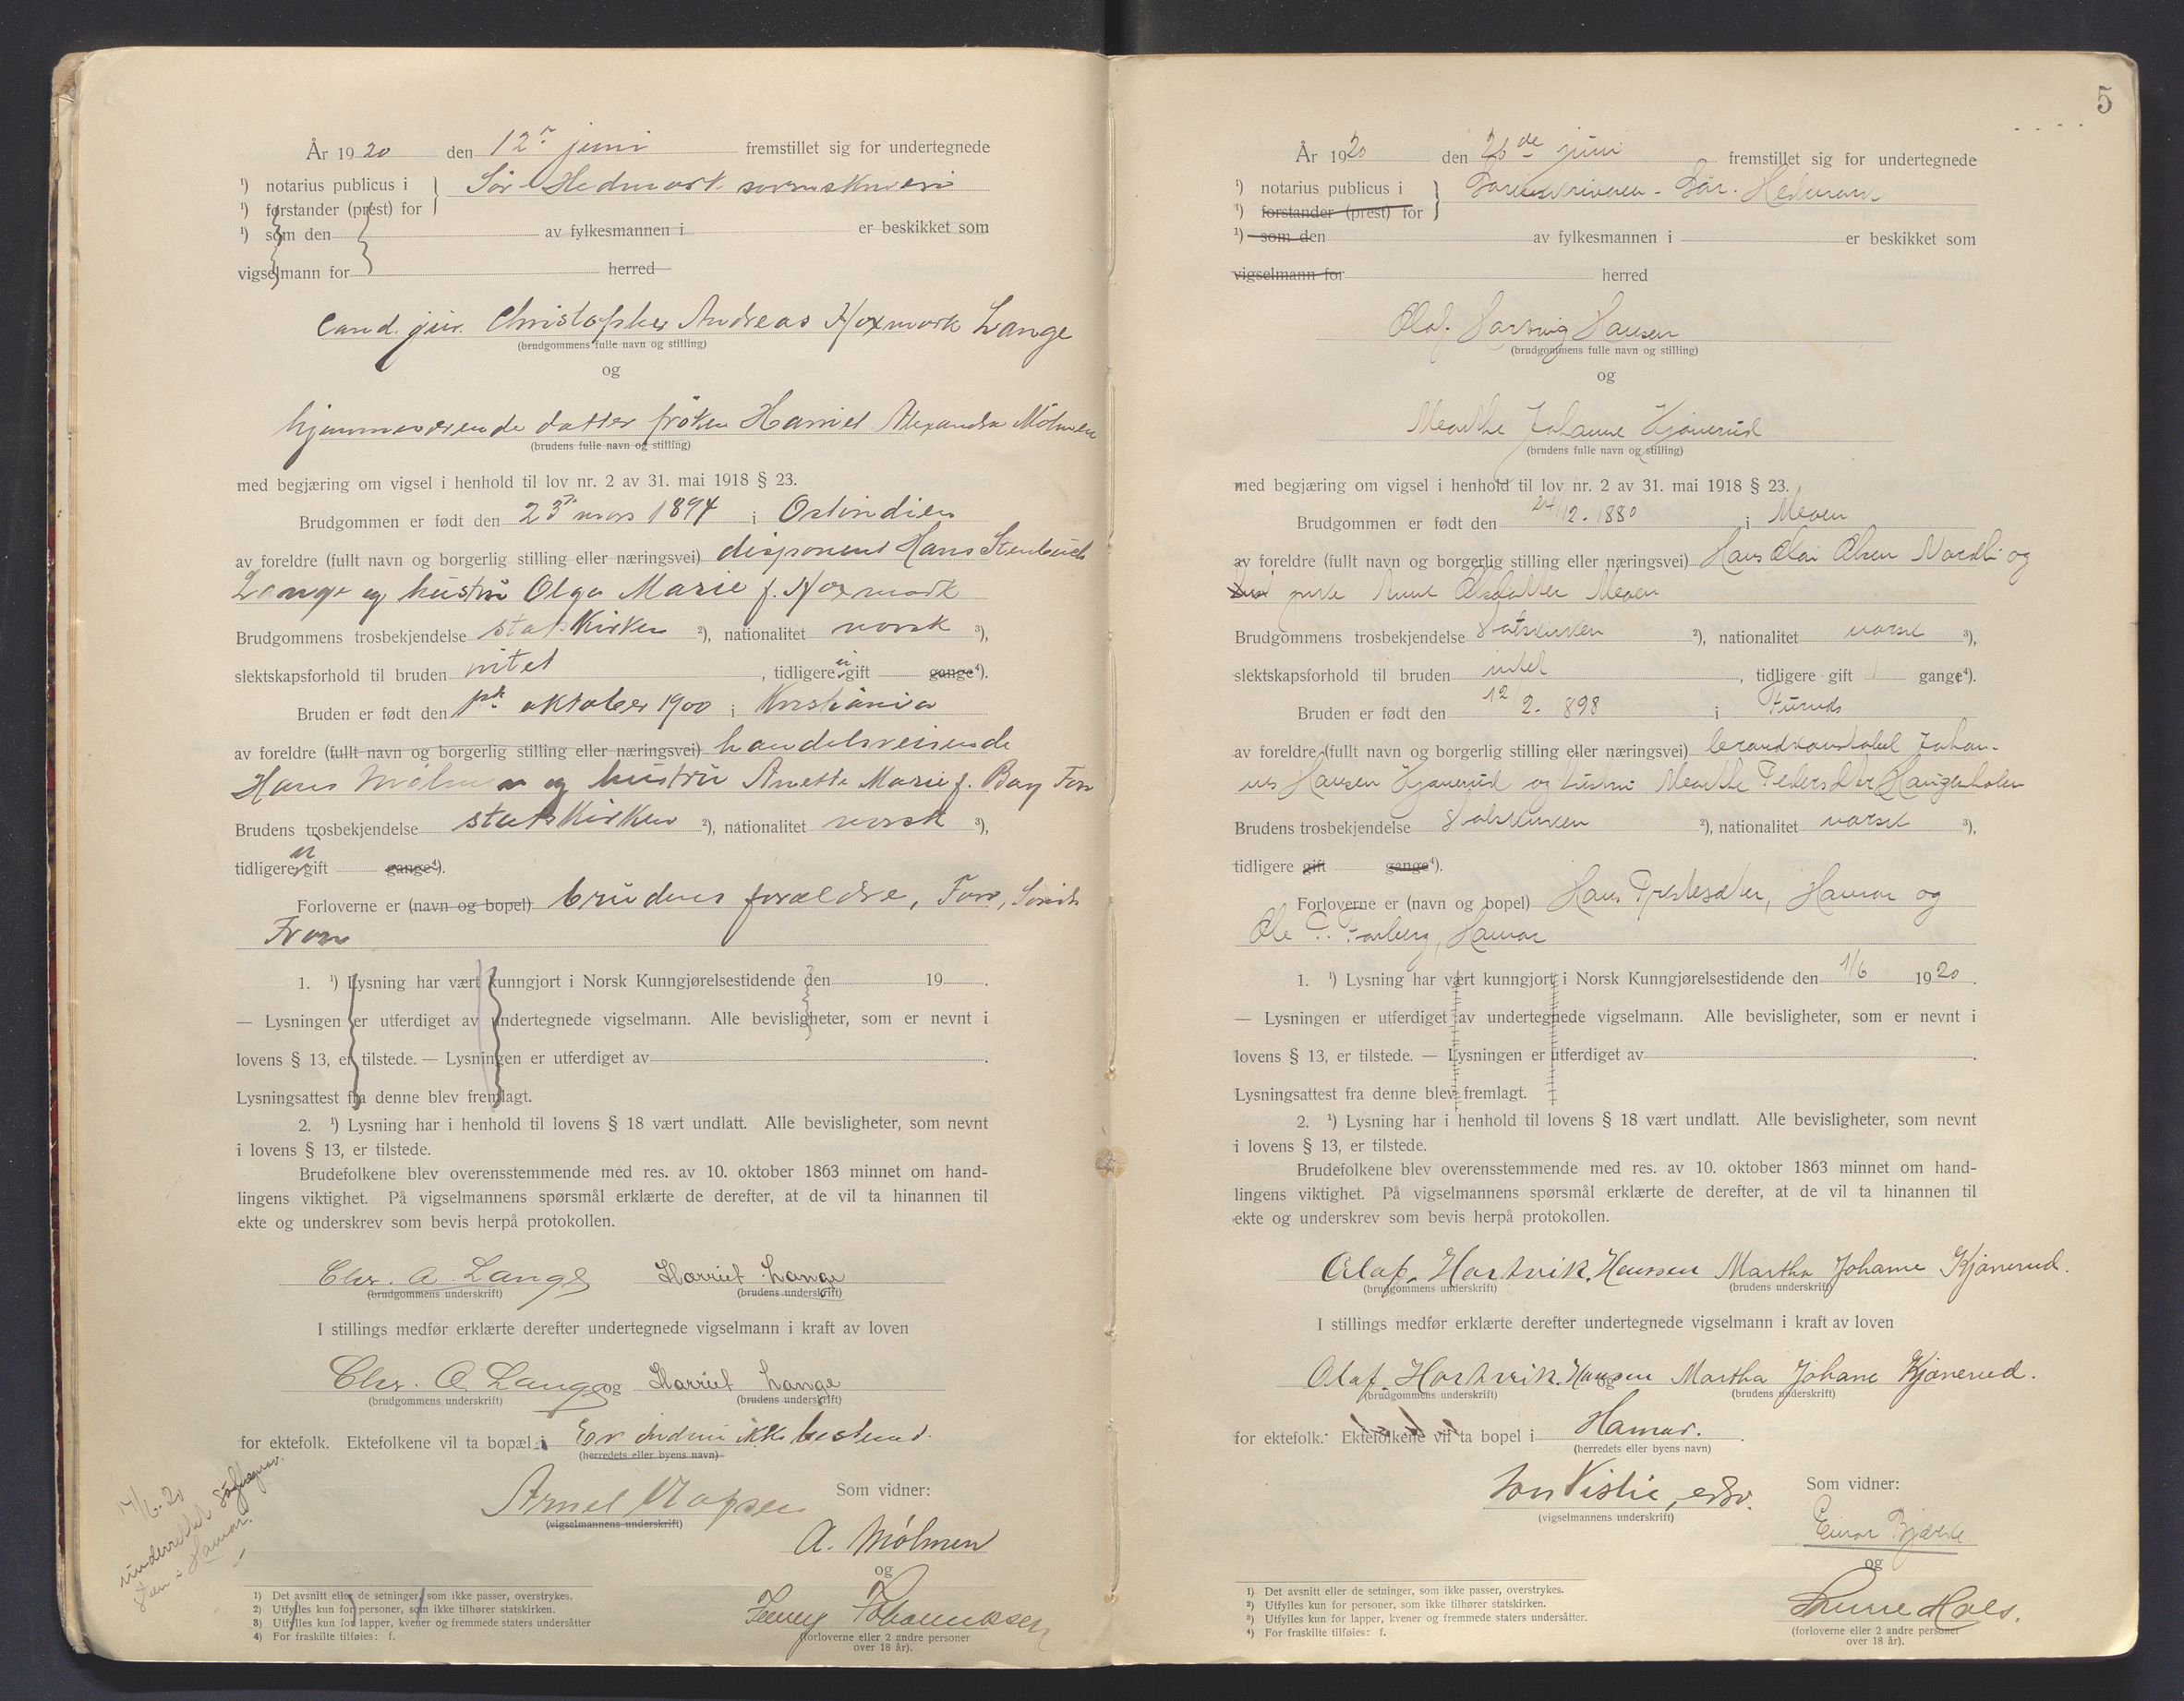 År 1920 den 12te juni fremstillet sig for undertegnede
¹) notarius publicus i Sør-Hedmark sorenskriveri
¹) forstander (prest) for
¹) som den av fylkesmannen i er beskikket som
vigselmann for herred
Cand. jur. Christopher Andreas Hoxmark Lange
(brudgommens fulle navn og stilling)
og
hjemmeværende datter frøken Harriet Alexandra Mölmen
(brudens fulle navn og stilling)
med begjæring om vigsel i henhold til lov nr. 2 av 31. mai 1918 § 23.
Brudgommen er født den 23de mars 1894 i Ostindien
av foreldre (fullt navn og borgerlig stilling eller næringsvei) disponent Hans Stenbuch
Lange og hustru Olga Marie f. Hoxmark
Brudgommens trosbekjendelse statskirken ²), nationalitet norsk ³),
slektskapsforhold til bruden intet, tidligere ei gift gange⁴).
Bruden er født den 1ste oktober 1900 i Kristiania
av foreldre (fullt navn og borgerlig stilling eller næringsvei) handelsreisende
Hans Mölmen og hustru Anette Marie f. Bay
Brudens trosbekjendelse statskirken ²), nationalitet norsk ³),
tidligere ei gift gange⁴).
Forloverne er (navn og bopel) brudens forældre,
Fron
1. ¹) Lysning har vært kunngjort i Norsk Kunngjørelsestidende den 19 .
— Lysningen er utferdiget av undertegnede vigselmann. Alle bevisligheter, som er nevnt i
lovens § 13, er tilstede. — Lysningen er utferdiget av .
Lysningsattest fra denne blev fremlagt.
2. ¹) Lysning har i henhold til lovens § 18 vært undlatt. Alle bevisligheter, som nevnt
i lovens § 13, er tilstede.
Brudefolkene blev overensstemmende med res. av 10. oktober 1863 minnet om hand-
lingens viktighet. På vigselmannens spørsmål erklærte de derefter, at de vil ta hinannen til
ekte og underskrev som bevis herpå protokollen.
Chr. A. Lange Harriet Lange
(brudgommens underskrift) (brudens underskrift)
I stillings medfør erklærte derefter undertegnede vigselmann i kraft av loven
Chr. A. Lange og Harriet Lange
(brudgommens underskrift) (brudens underskrift)
for ektefolk. Ektefolkene vil ta bopæl i Er endnu ikke bestemt.
(herredets eller byens navn)
Som vidner:
(vigselmannens underskrift)
A. Mölmen
og
14/6-20
underrettet
i Hamar.
1) Det avsnitt eller de setninger, som ikke passer, overstrykes.
2) Utfylles kun for personer, som ikke tilhører statskirken.
3) Utfylles kun for lapper, kvener og fremmede staters undersåtter
4) For fraskilte tilføies: f.
(forloverne eller 2 andre personer
over 18 år).
5
År 1920 den 26de juni fremstillet sig for undertegnede
¹) notarius publicus i Sorenskriveren - Sør-Hedmark
¹) forstander (prest) for
¹) som den av fylkesmannen i er beskikket som
vigselmann for herred
Olaf Hartvig Hansen
(brudgommens fulle navn og stilling)
og
Marthe Johanne Kjönerud
(brudens fulle navn og stilling)
med begjæring om vigsel i henhold til lov nr. 2 av 31. mai 1918 § 23.
Brudgommen er født den 24/12. 1880 i
av foreldre (fullt navn og borgerlig stilling eller næringsvei) Hans Olai Olsen Nordli og
pike Anne Olsdatter
Brudgommens trosbekjendelse Statskirken ²), nationalitet norsk ³),
slektskapsforhold til bruden intet, tidligere gift 1 gange⁴).
Bruden er født den 12/2. 898 i Furnes
av foreldre (fullt navn og borgerlig stilling eller næringsvei) brandkonstabel Johan-
nes Hansen Kjönerud og hustru Marthe Pedersdtr Haugenholen
Brudens trosbekjendelse Statskirken ²), nationalitet norsk ³),
tidligere gift gange⁴).
Forloverne er (navn og bopel) Hans Prestesæter, Hamar og
Ole P. Farberg, Hamar
1. ¹) Lysning har vært kunngjort i Norsk Kunngjørelsestidende den 1/6 1920.
— Lysningen er utferdiget av undertegnede vigselmann. Alle bevisligheter, som er nevnt i
lovens § 13, er tilstede. — Lysningen er utferdiget av .
Lysningsattest fra denne blev fremlagt.
2. ¹) Lysning har i henhold til lovens § 18 vært undlatt. Alle bevisligheter, som nevnt
i lovens § 13, er tilstede.
Brudefolkene blev overensstemmende med res. av 10. oktober 1863 minnet om hand-
lingens viktighet. På vigselmannens spørsmål erklærte de derefter, at de vil ta hinannen til
ekte og underskrev som bevis herpå protokollen.
Olaf. Hartvik. Hanssen Martha Johanne Kjönerud.
(brudgommens underskrift) (brudens underskrift)
I stillings medfør erklærte derefter undertegnede vigselmann i kraft av loven
Olaf. Hartvik. Hansen og Martha Johane Kjönerud.
(brudgommens underskrift) (brudens underskrift)
for ektefolk. Ektefolkene vil ta bopel i Hamar.
(herredets eller byens navn)
Vislie, Som vidner:
(vigselmannens underskrift)
Einar
og
(forloverne eller 2 andre personer
over 18 år).
1) Det avsnitt eller de setninger, som ikke passer, overstrykes.
²) Utfylles kun for personer, som ikke tilhører statskirken.
³) Utfylles kun for lapper, kvener og fremmede staters undersåtter.
⁴) For fraskilte tilføies: f.